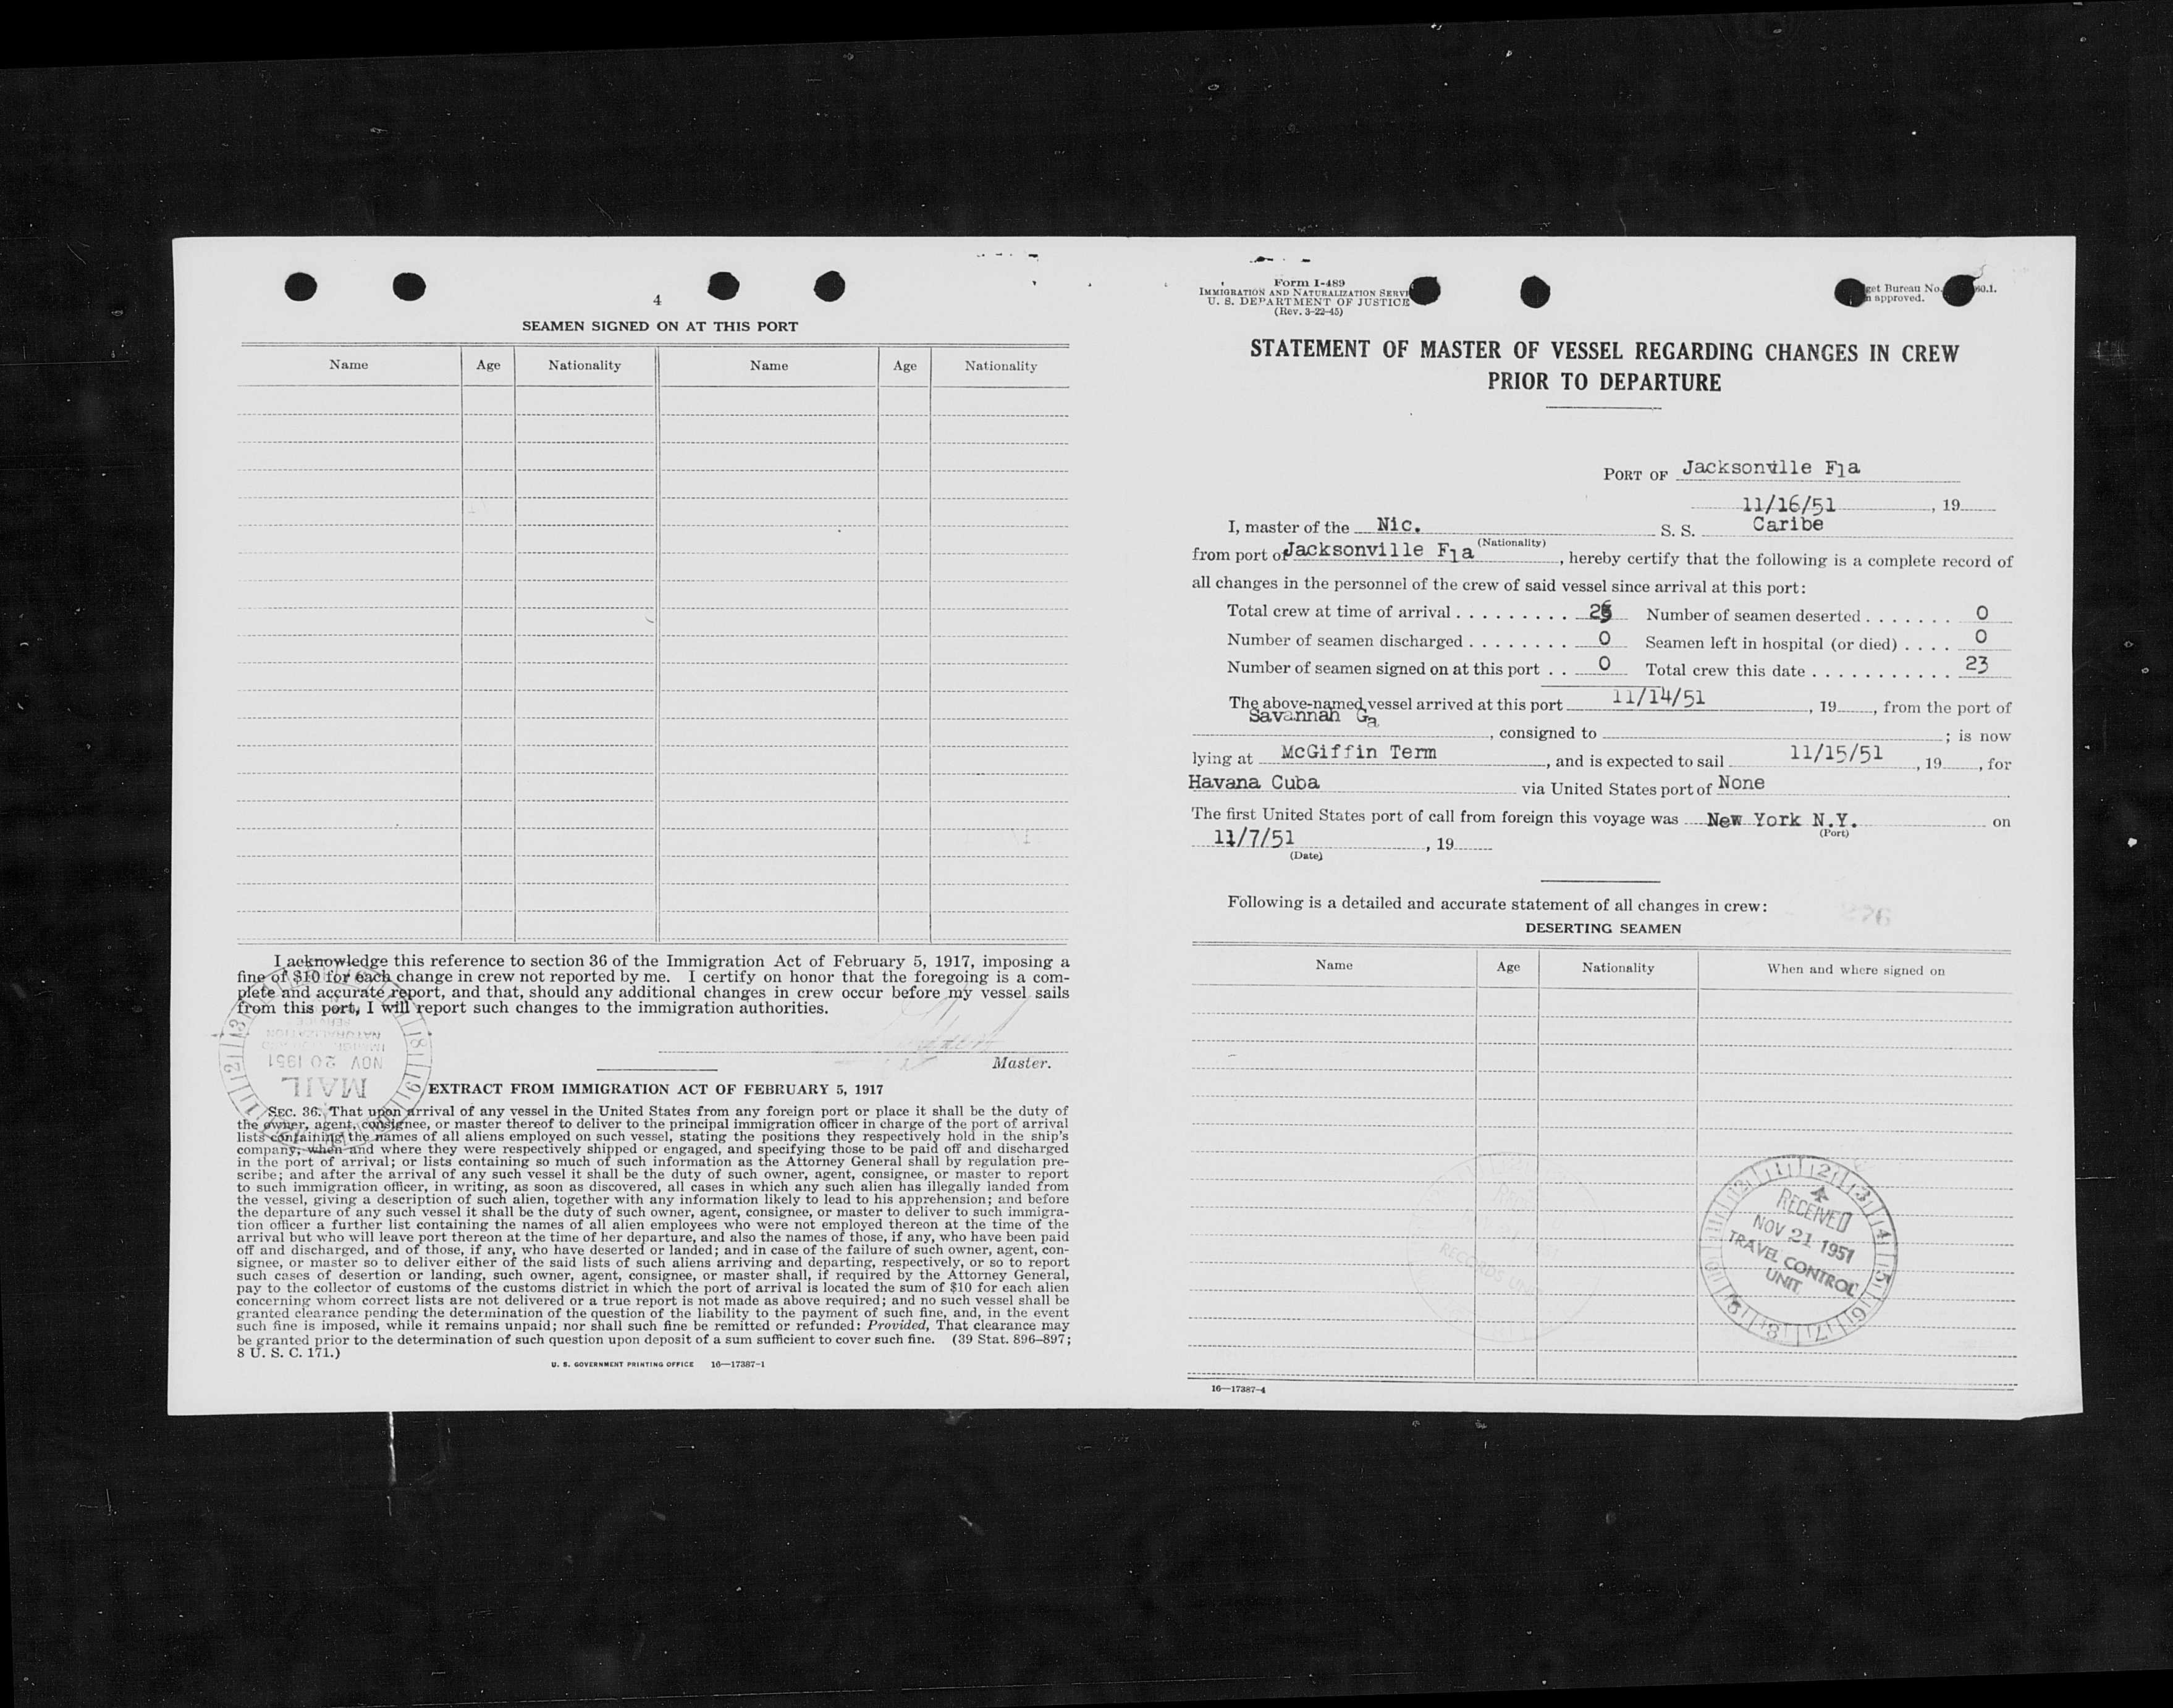 4
SEAMEN SIGNED ON AT THIS PORT
Name Age Nationality Name Age Nationality
I acknowledge this reference to section 36 of the Immigration Act of February 5, 1917, imposing a
fine of $10 for each change in crew not reported by me. I certify on honor that the foregoing is a com-
plete and accurate report, and that, should any additional changes in crew occur before my vessel sails
from this port, I will report such changes to the immigration authorities.
Master.
NATURALIZATION
SERVICE
NOV 20 1951
MAIL
EXTRACT FROM IMMIGRATION ACT OF FEBRUARY 5, 1917
SEC. 36. That upon arrival of any vessel in the United States from any foreign port or place it shall be the duty of
the owner, agent, consignee, or master thereof to deliver to the principal immigration officer in charge of the port of arrival
lists containing the names of all aliens employed on such vessel, stating the positions they respectively hold in the ship's
company, when and where they were respectively shipped or engaged, and specifying those to be paid off and discharged
in the port of arrival; or lists containing so much of such information as the Attorney General shall by regulation pre-
scribe; and after the arrival of any such vessel it shall be the duty of such owner, agent, consignee, or master to report
to such immigration officer, in writing, as soon as discovered, all cases in which any such alien has illegally landed from
the vessel, giving a description of such alien, together with any information likely to lead to his apprehension; and before
the departure of any such vessel it shall be the duty of such owner, agent, consignee, or master to deliver to such immigra-
tion officer a further list containing the names of all alien employees who were not employed thereon at the time of the
arrival but who will leave port thereon at the time of her departure, and also the names of those, if any, who have been paid
off and discharged, and of those, if any, who have deserted or landed; and in case of the failure of such owner, agent, con-
signee, or master so to deliver either of the said lists of such aliens arriving and departing, respectively, or so to report
such cases of desertion or landing, such owner, agent, consignee, or master shall, if required by the Attorney General,
pay to the collector of customs of the customs district in which the port of arrival is located the sum of $10 for each alien
concerning whom correct lists are not delivered or a true report is not made as above required; and no such vessel shall be
granted clearance pending the determination of the question of the liability to the payment of such fine, and, in the event
such fine is imposed, while it remains unpaid; nor shall such fine be remitted or refunded: Provided, That clearance may
be granted prior to the determination of such question upon deposit of a sum sufficient to cover such fine. (39 Stat. 896–897;
8 U. S. C. 171.)
U. S. GOVERNMENT PRINTING OFFICE 16—17387-1
Form I-489
IMMIGRATION AND NATURALIZATION SERVI
U. S. DEPARTMENT OF JUSTICE
(Rev. 3-22-45)
get Bureau No. 60.1.
approved.
STATEMENT OF MASTER OF VESSEL REGARDING CHANGES IN CREW
PRIOR TO DEPARTURE
PORT OF Jacksonville Fla
11/16/51, 19
I, master of the Nic. S. S. Caribe
(Nationality)
from port of Jacksonville Fla, hereby certify that the following is a complete record of
all changes in the personnel of the crew of said vessel since arrival at this port:
Total crew at time of arrival . . . . . . . . . Number of seamen deserted . . . . . . . 0
Number of seamen discharged . . . . . . . . 0 Seamen left in hospital (or died) . . . . 0
Number of seamen signed on at this port . . 0 Total crew this date . . . . . . . . . . . 23
The above-named vessel arrived at this port 11/14/51, 19, from the port of
Savannah Ga, consigned to ; is now
lying at McGiffin Term, and is expected to sail 11/15/51, 19, for
Havana Cuba via United States port of None
The first United States port of call from foreign this voyage was New York N.Y. on
(Port)
11/7/51, 19
(Date)
Following is a detailed and accurate statement of all changes in crew:
276
DESERTING SEAMEN
Name Age Nationality When and where signed on
RECORDS UNIT
RECEIVED
NOV 21 1951
TRAVEL CONTROL
UNIT
16—17387-4